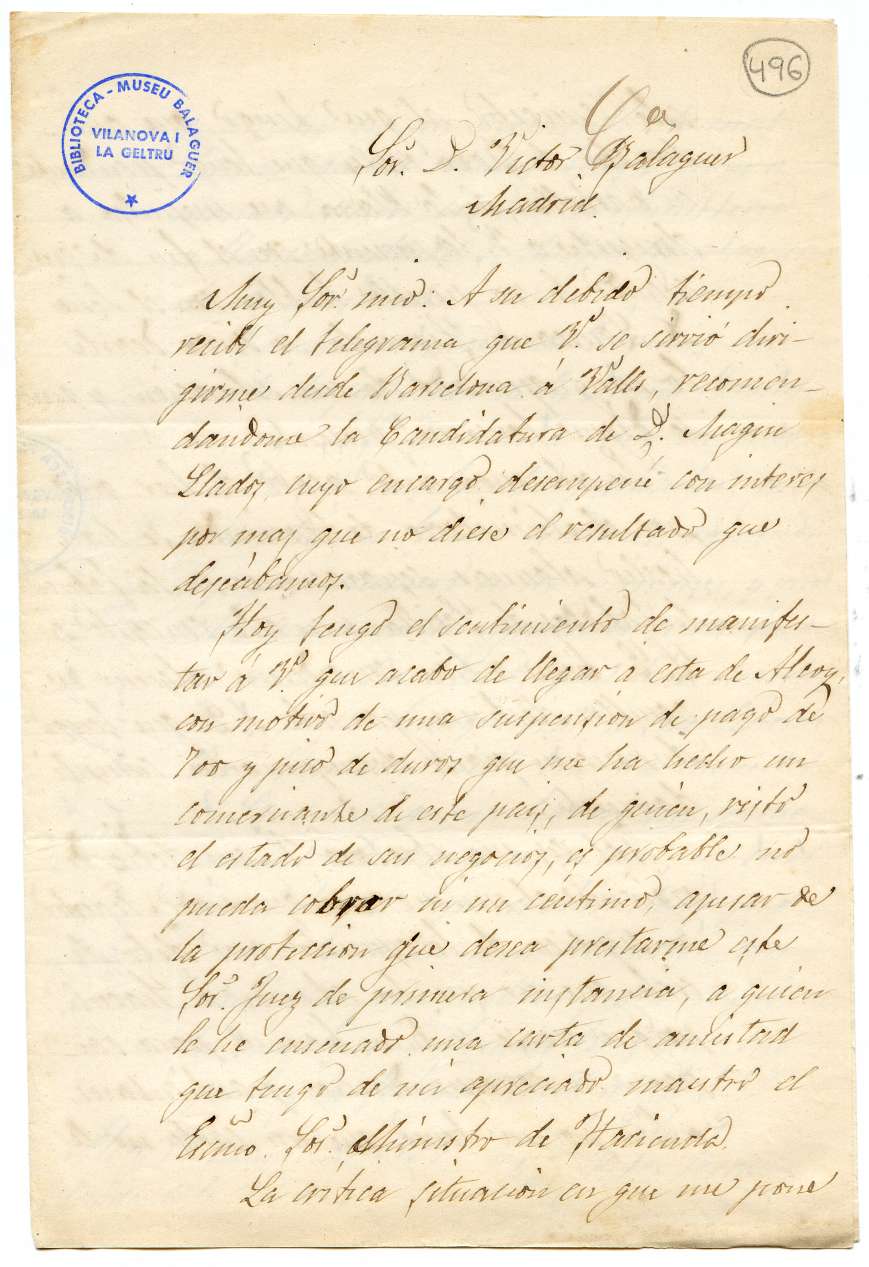 496
BIBLIOTECA - MUSEU BALAGUER
VILANOVA I
LA GELTRU
Sor. D. Victor Balaguer
Madrid.
Muy Sor. mio: A su debido tiempo
recibí el telegrama que V. se sirvió diri-
girme desde Barcelona á Valls, recomen-
dándome la Candidatura de D. Magin
Llados, cuyo encargo desempeñé con interes,
por mas que no diese el resultado que
deseábamos.
Hoy tengo el sentimiento de manifes-
tar á V. que acabo de llegar á esta de Alcoy,
con motivo de una suspension de pago de
700 y pico de duros que me ha hecho un
comerciante de este pais, de quien, visto
el estado de sus negocios, es probable no
pueda cobrar ni un céntimo, apesar de
la proteccion que desea prestarme este
Sor. Juez de primera instancia, a quien
le he enseñado una carta de amistad
que tengo de mi apreciado maestro el
Escmo. Sor. Ministro de Hacienda.
La crítica situacion en que me pone